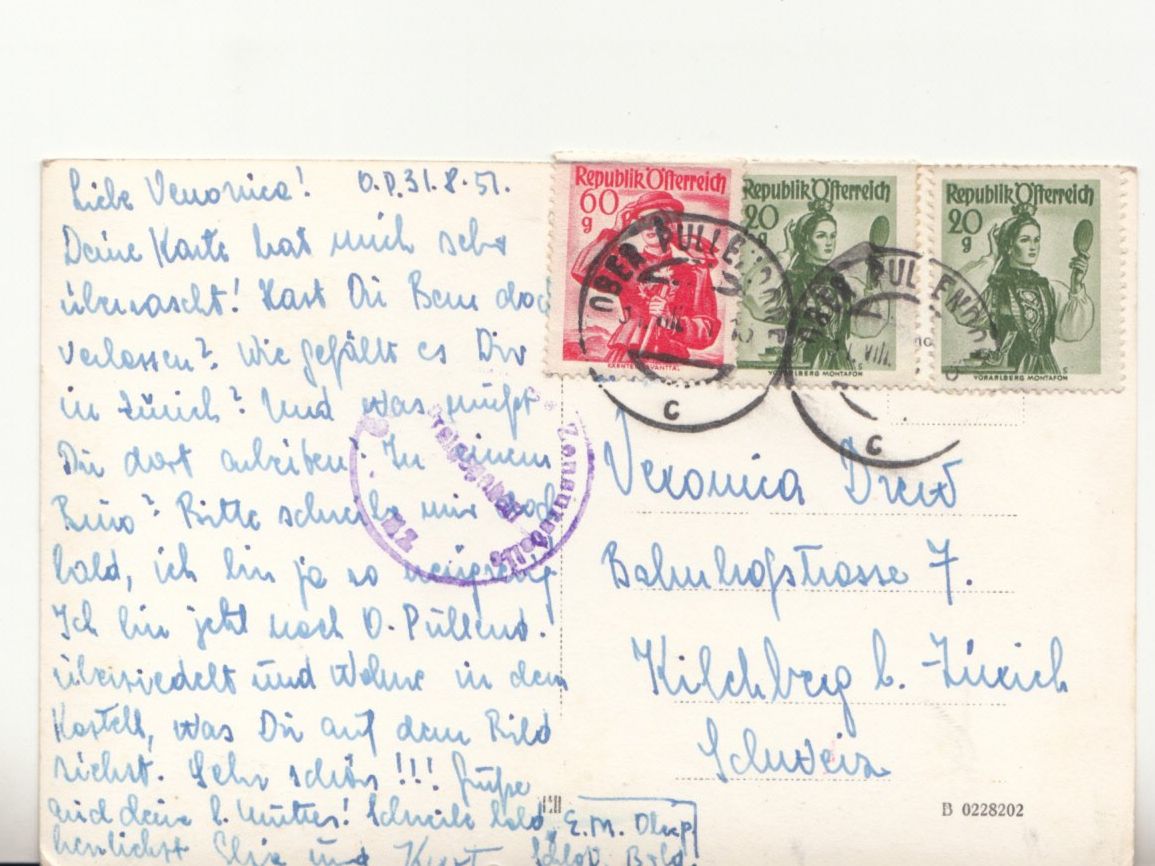 Liebe Veronica! O.P. 31.8.51.
Deine Karte hat mich sehr
überrascht! Hast Du Bern doch
verlassen? Wie gefällt es Dir
in Zürich? Und was mußt
Du dort arbeiten? In einem
Büro? Bitte schreibe mir doch
bald, ich bin ja so neugierig
Ich bin jetzt nach O.-Pullend.
übersiedelt und wohne in dem
Kastell, was Du auf dem Bild
siehst. Sehr schön!!! Grüße
und deine l. Mutter! Schreibe bald,
herzlichst und Kurt
E.M.
Republik Österreich
60
g
KÄRNTEN LAVANTTAL
Republik Österreich
20
g
VORARLBERG MONTAFON
Republik Österreich
20
g
VORARLBERG MONTAFON
OBER PULLENDORF
C
OBER PULLENDORF
VIII.
C
Zensurstelle
Veronica
Bahnhofstrasse 7.
Kilchberg b. Zürich
Schweiz
B 0228202